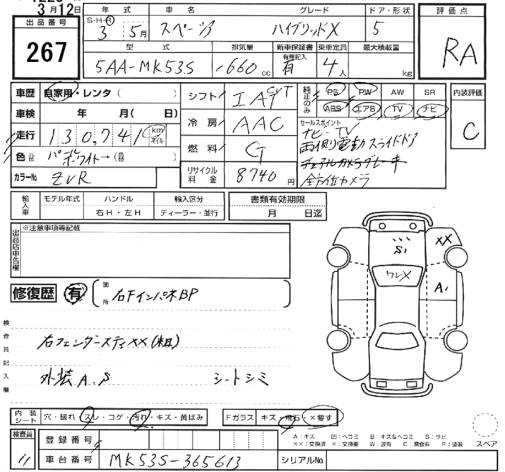 3月12日
出品番号
267
年式 車名 グレード ドア・形状 評価点
S・H・R 3年 5月 スペーシア ハイブリッドX 5
RA
型式 排気量 新車保証書 乗車定員 最大積載量
5AA-MK53S 660cc 有 4人 kg
車歴 自家用・レンタ( )
車検 年 月( 日)
走行 130,741 km マイル
色 パールホワイト→
カラーNo. ZVR
シフト IAT
冷房 AAC
燃料 G
リサイクル料金 8740円
純正のみ PS PW AW SR
ABS エアB TV ナビ
セールスポイント
ナビ・TV
両側電動スライドドア
全方位カメラ
内装評価
C
輸入車 モデル年式 ハンドル 輸入区分 書類有効期限
年 右H・左H ディーラー・並行 月 日迄
出品店申告欄
※注意事項等記載
修復歴 有 箇所 右FインパネBP
検査員記入欄
右フェンダーステイXX(相)
外装A、S シートシミ
S1 XX
ワレX A1
内装シート 穴・破れ・スレ・コゲ・汚れ・キズ・黄ばみ
Fガラス キズ・飛石・×要す
検査員 11
登録番号
車台番号 MK53S-365613
シリアルNo.
A:キズ U:ヘコミ B:キズ&ヘコミ S:サビ
XX:交換済 X:要交換 W:波有 C:腐食有 P:塗装
スペア